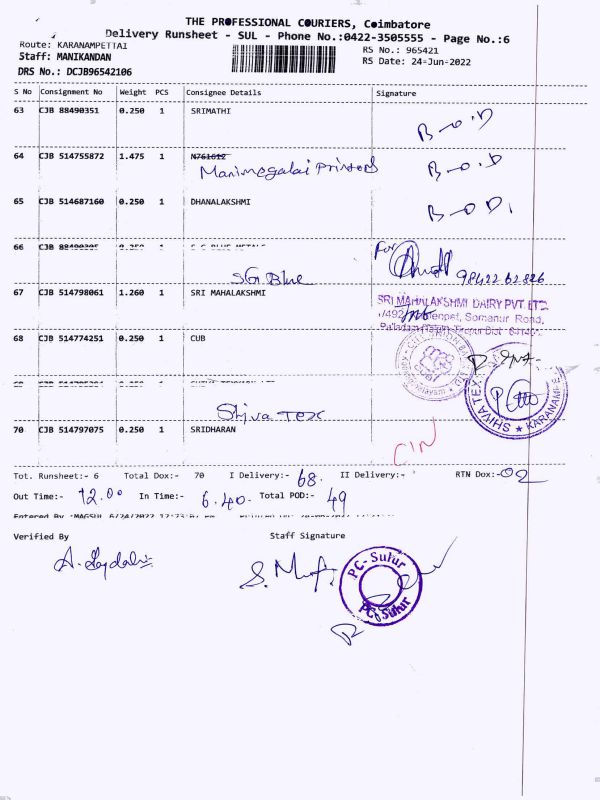 THE PROFESSIONAL COURIERS, Coimbatore
Delivery Runsheet - SUL - Phone No.:0422-3505555 - Page No.:6
Route: KARANAMPETTAI RS No.: 965421
Staff: MANIKANDAN RS Date: 24-Jun-2022
DRS No.: DCJB96542106
S No Consignment No Weight PCS Consignee Details Signature
63 CJB 88490351 0.250 1 SRIMATHI B-O.D
64 CJB 514755872 1.475 1 N761612 B-O.D
Manimegalai Printers
65 CJB 514687160 0.250 1 DHANALAKSHMI B-O D.
66 CJB For
SG Blue 98422 62826
67 CJB 514798061 1.260 1 SRI MAHALAKSHMI SRI MAHALAKSHMI DAIRY PVT. LTD.
Somanur Road,
68 CJB 514774251 0.250 1 CUB
SHIVA TEX ★ KARANAMPE
Shiva Tex
70 CJB 514797075 0.250 1 SRIDHARAN C/N
Tot. Runsheet:- 6 Total Dox:- 70 I Delivery:- 68. II Delivery:- RTN Dox:- 02
Out Time:- 12.00 In Time:- 6.40. Total POD:- 49
Verified By Staff Signature
PC-Sulur
PC-Sulur